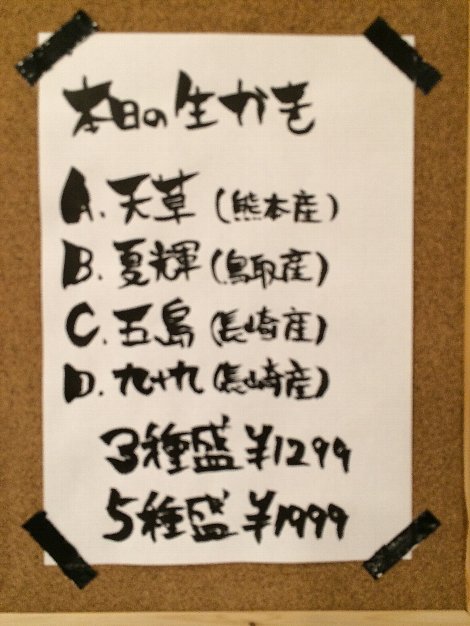 本日の生かき
A. 天草 (熊本産)
B. 夏輝 (鳥取産)
C. 五島 (長崎産)
D. 九十九 (長崎産)
3種盛 ¥1299
5種盛 ¥1999